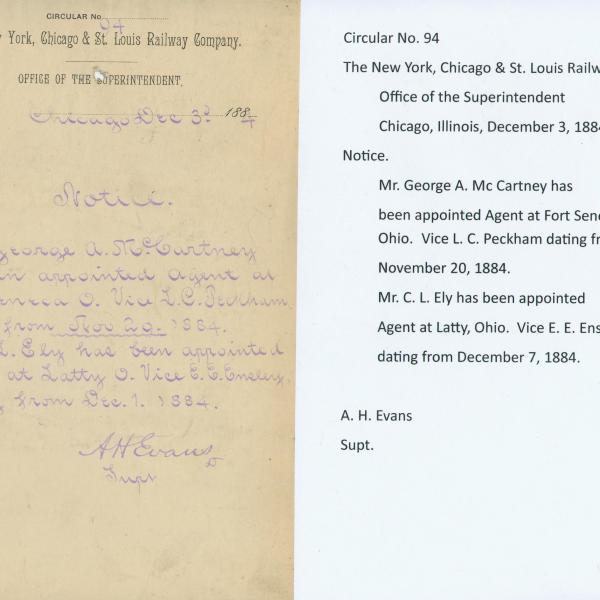 CIRCULAR No. 94
York, Chicago & St. Louis Railway Company.
OFFICE OF THE SUPERINTENDENT,
Chicago Dec 3d 1884
Notice.
George A. McCartney
appointed Agent at
Seneca O. Vice L.C. Peckham
from Nov 20. 1884.
L. Ely has been appointed
at Latty O. Vice E.E. Ensley,
from Dec. 1. 1884.
A H Evans
Supt
Circular No. 94
The New York, Chicago & St. Louis Railw
Office of the Superintendent
Chicago, Illinois, December 3, 1884
Notice.
Mr. George A. Mc Cartney has
been appointed Agent at Fort Sene
Ohio. Vice L. C. Peckham dating fr
November 20, 1884.
Mr. C. L. Ely has been appointed
Agent at Latty, Ohio. Vice E. E. Ens
dating from December 7, 1884.
A. H. Evans
Supt.